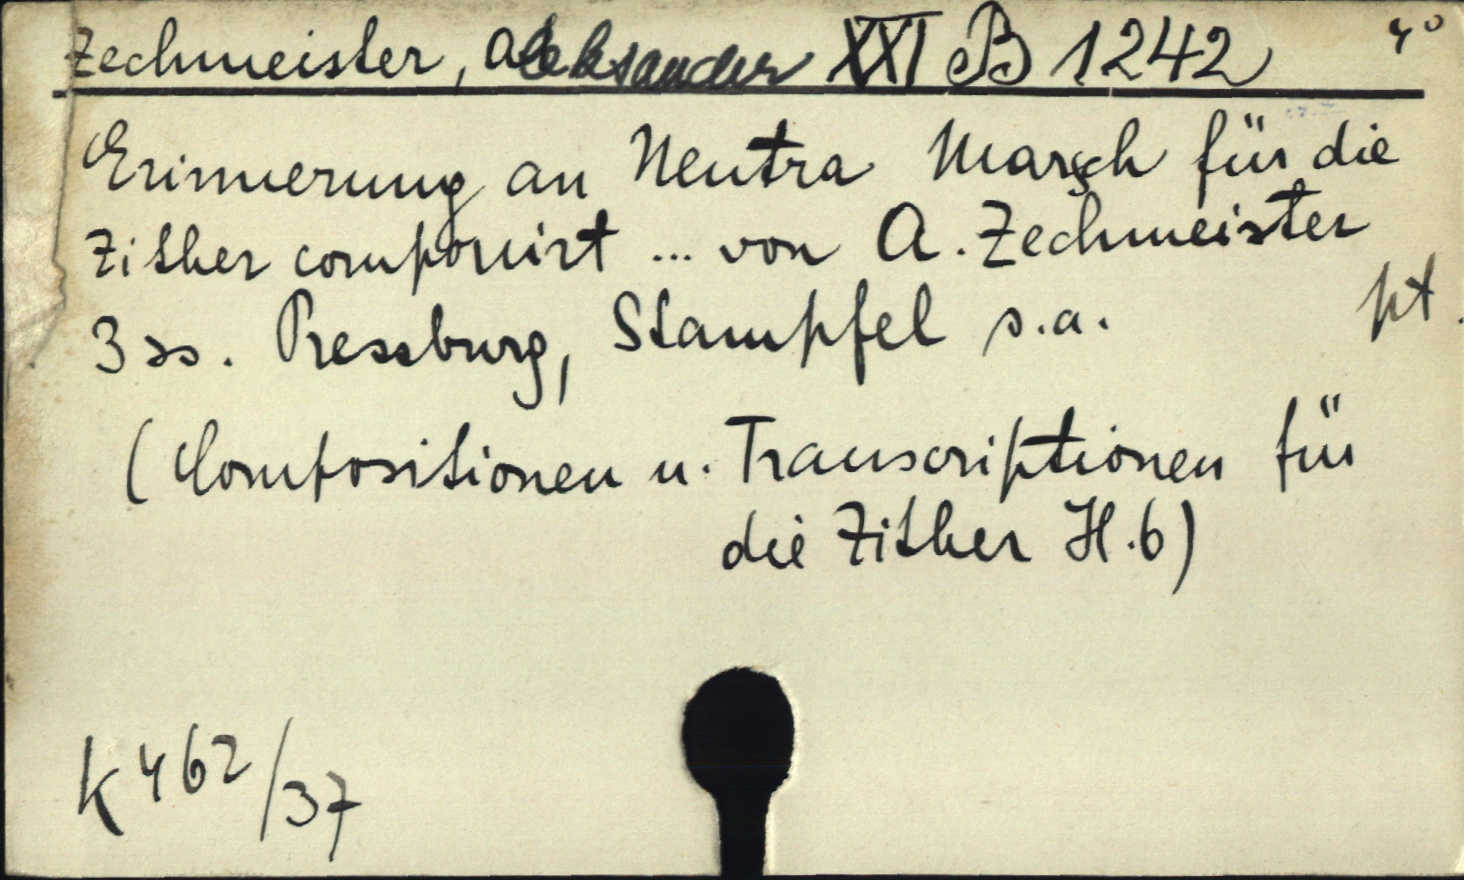 Zechmeister, Aleksander XXI B 1242 4°
Erinnerung an Neutra Marsch für die
Zither componirt ... von A. Zechmeister
3 ss. Pressburg, Stampfel s.a. pt.
(Compositionen u. Transcriptionen für
die Zither H.6)
K 462/37